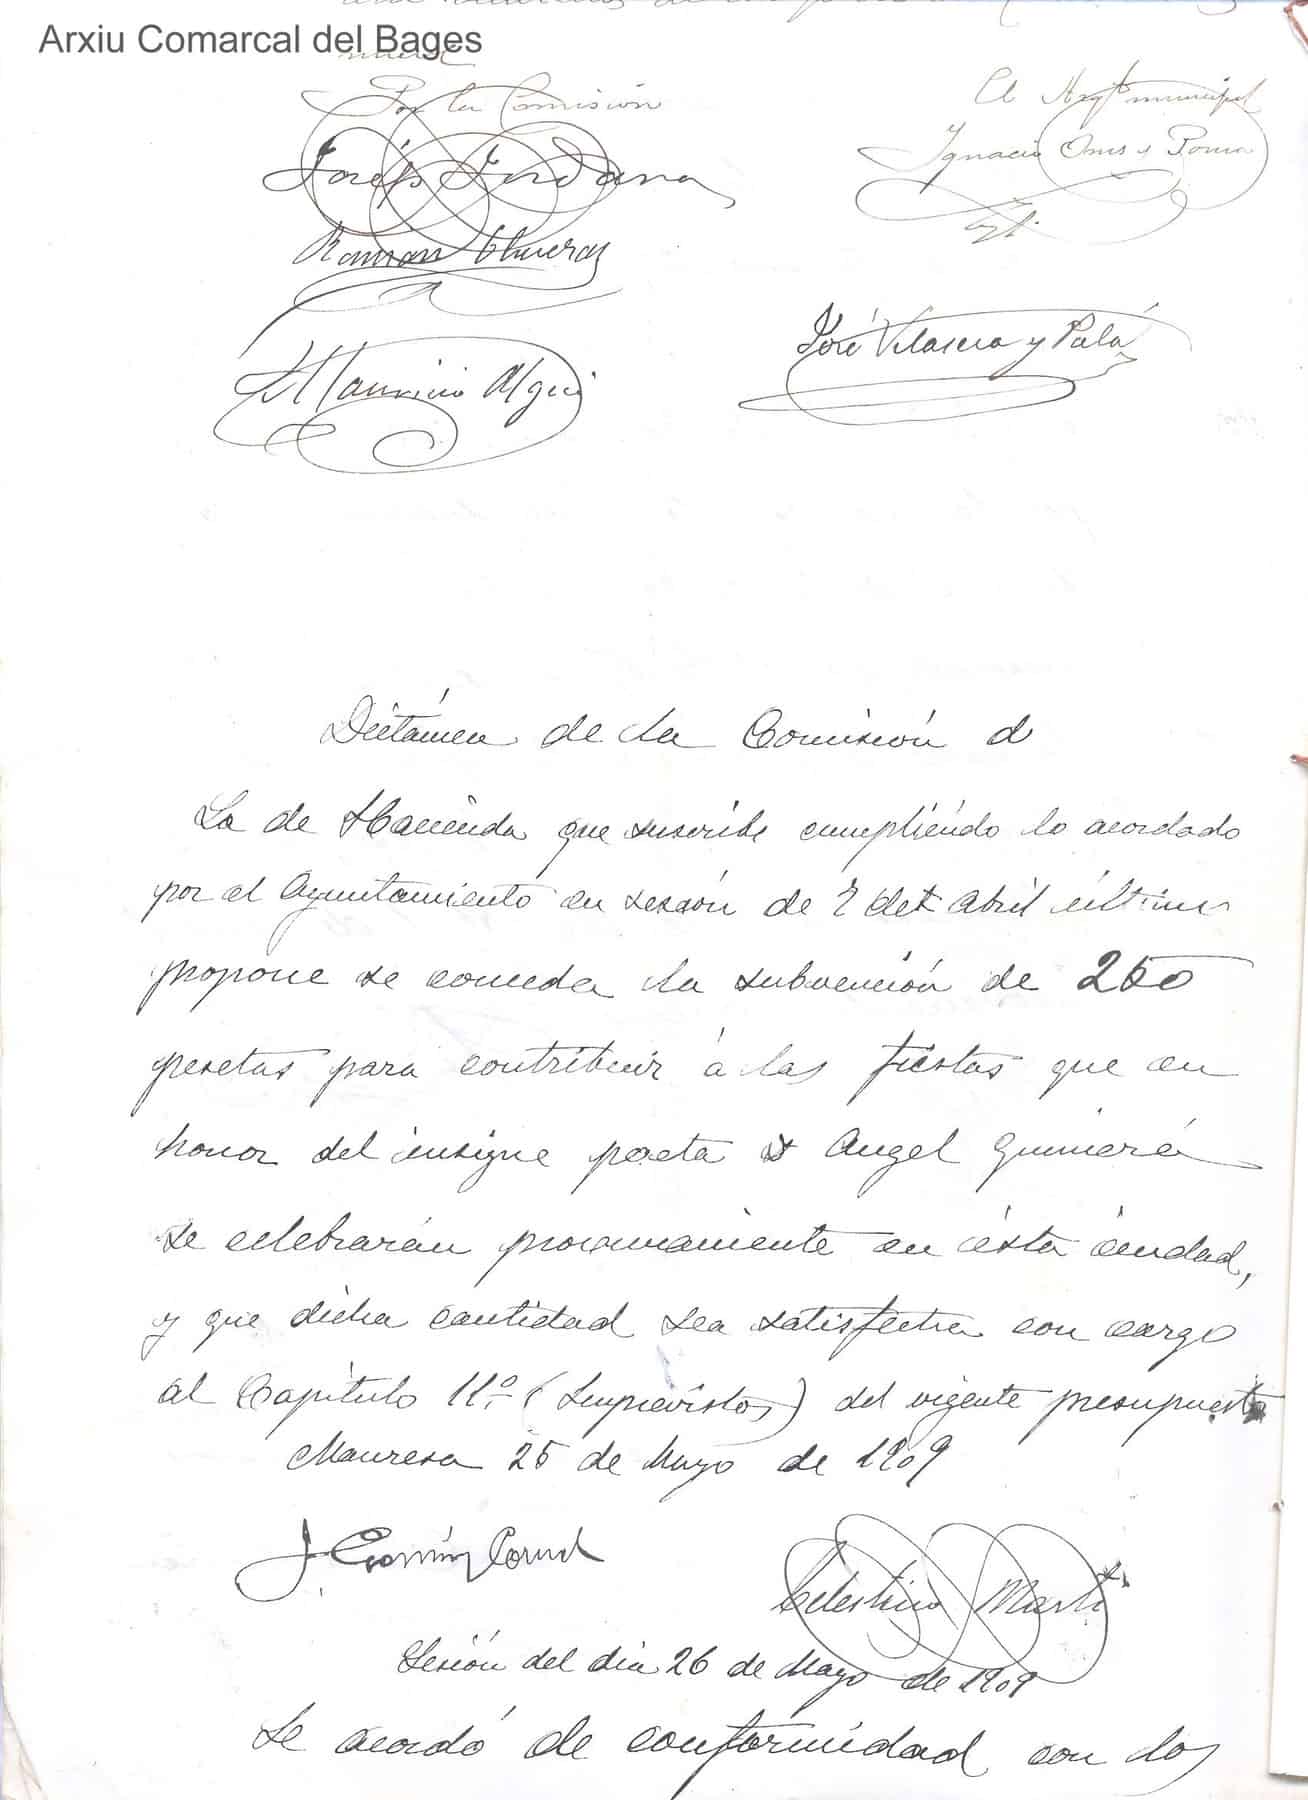 Arxiu Comarcal del Bages
Por la Comisión
El Arqto municipal
Josép Jordana
Ignacio Oms y Ponsa
Ramon Oliveras
José Vilaseca y Palá
Mauricio Algué
Dictámen de la Comisión d
La de Hacienda que suscribe cumpliendo lo acordado
por el Ayuntamiento en sesión de 7 del Abril último
propone se conceda la subvención de 250
pesetas para contribuir á las fiestas que en
honor del insigne poeta Angel Guimerá
se celebrarán proximamente en ésta ciudad,
y que dicha cantidad sea satisfecha con cargo
al Capitulo 11º (Imprevistos) del vigente presupuesto
Manresa 25 de Mayo de 1909
Celestino Marti
Sesión del dia 26 de Mayo de 1909
Se acordó de conformidad con los